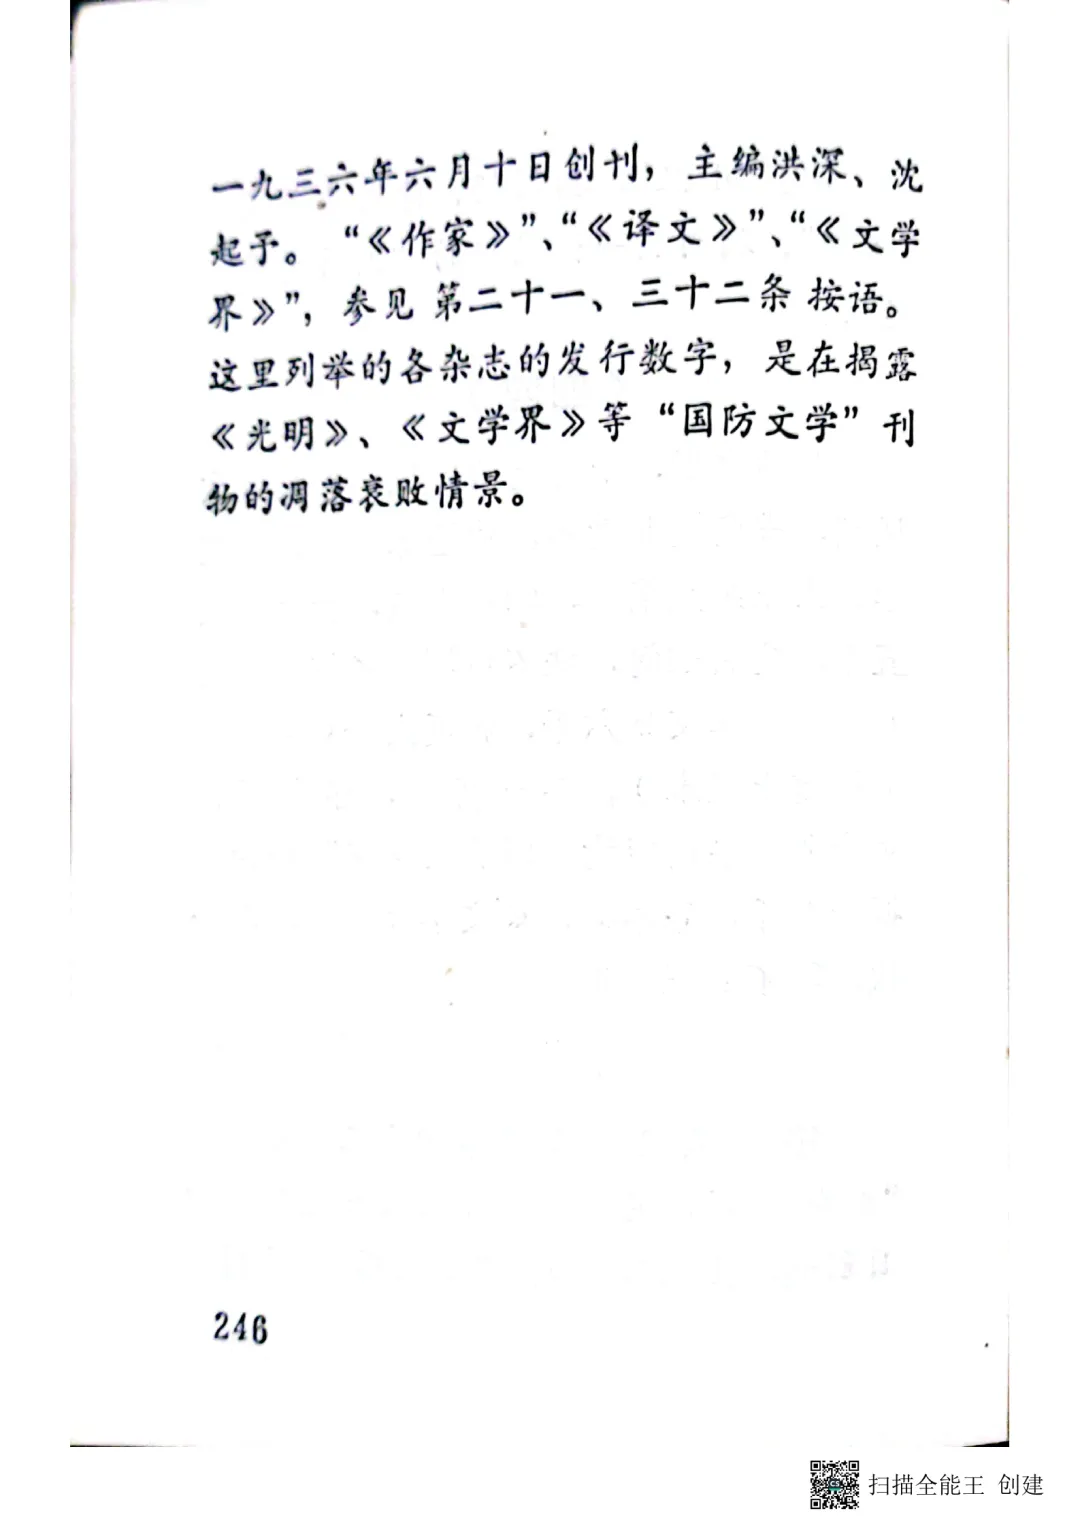 一九三六年六月十日创刊，主编洪深、沈
起予。“《作家》”、“《译文》”、“《文学
界》”，参见第二十一、三十二条按语。
这里列举的各杂志的发行数字，是在揭露
《光明》、《文学界》等“国防文学”刊
物的凋落衰败情景。
246
扫描全能王 创建